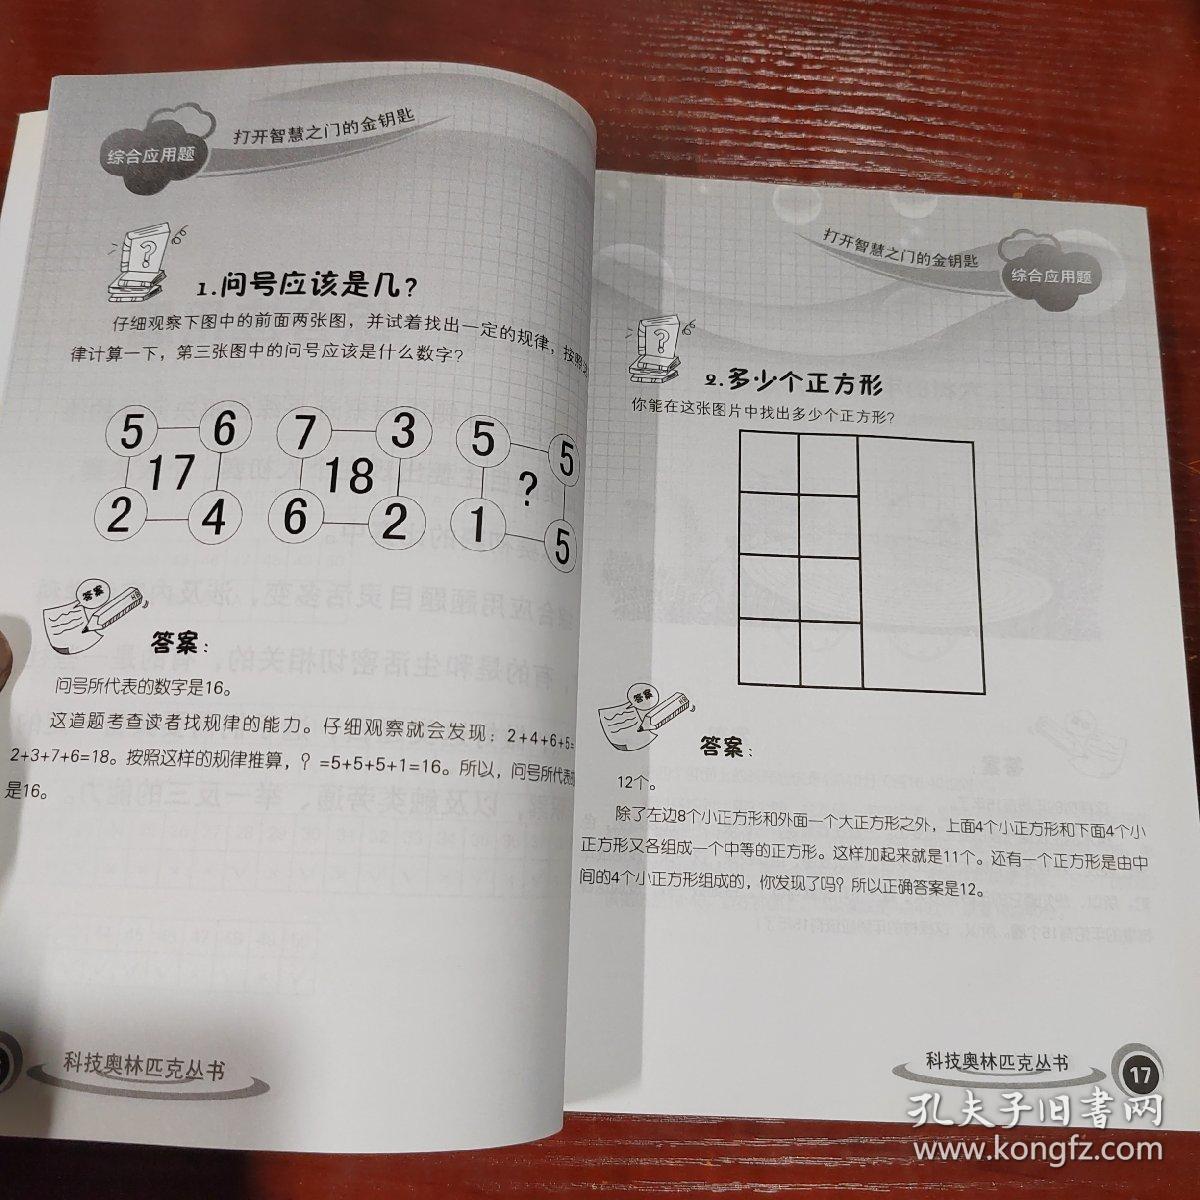 综合应用题
打开智慧之门的金钥匙
1.问号应该是几？
仔细观察下图中的前面两张图，并试着找出一定的规律，按照
律计算一下，第三张图中的问号应该是什么数字？
5 6 7 3 5 5
17 18 ?
2 4 6 2 1 5
答案
答案：
问号所代表的数字是16。
这道题考查读者找规律的能力。仔细观察就会发现：2+4+6+5=
2+3+7+6=18。按照这样的规律推算，？=5+5+5+1=16。所以，问号所代表
是16。
科技奥林匹克丛书
打开智慧之门的金钥匙
综合应用题
2.多少个正方形
你能在这张图片中找出多少个正方形？
答案
答案：
12个。
除了左边8个小正方形和外面一个大正方形之外，上面4个小正方形和下面4个小
正方形又各组成一个中等的正方形。这样加起来就是11个。还有一个正方形是由中
间的4个小正方形组成的，你发现了吗？所以正确答案是12。
科技奥林匹克丛书
17
孔夫子旧书网
www.kongfz.com